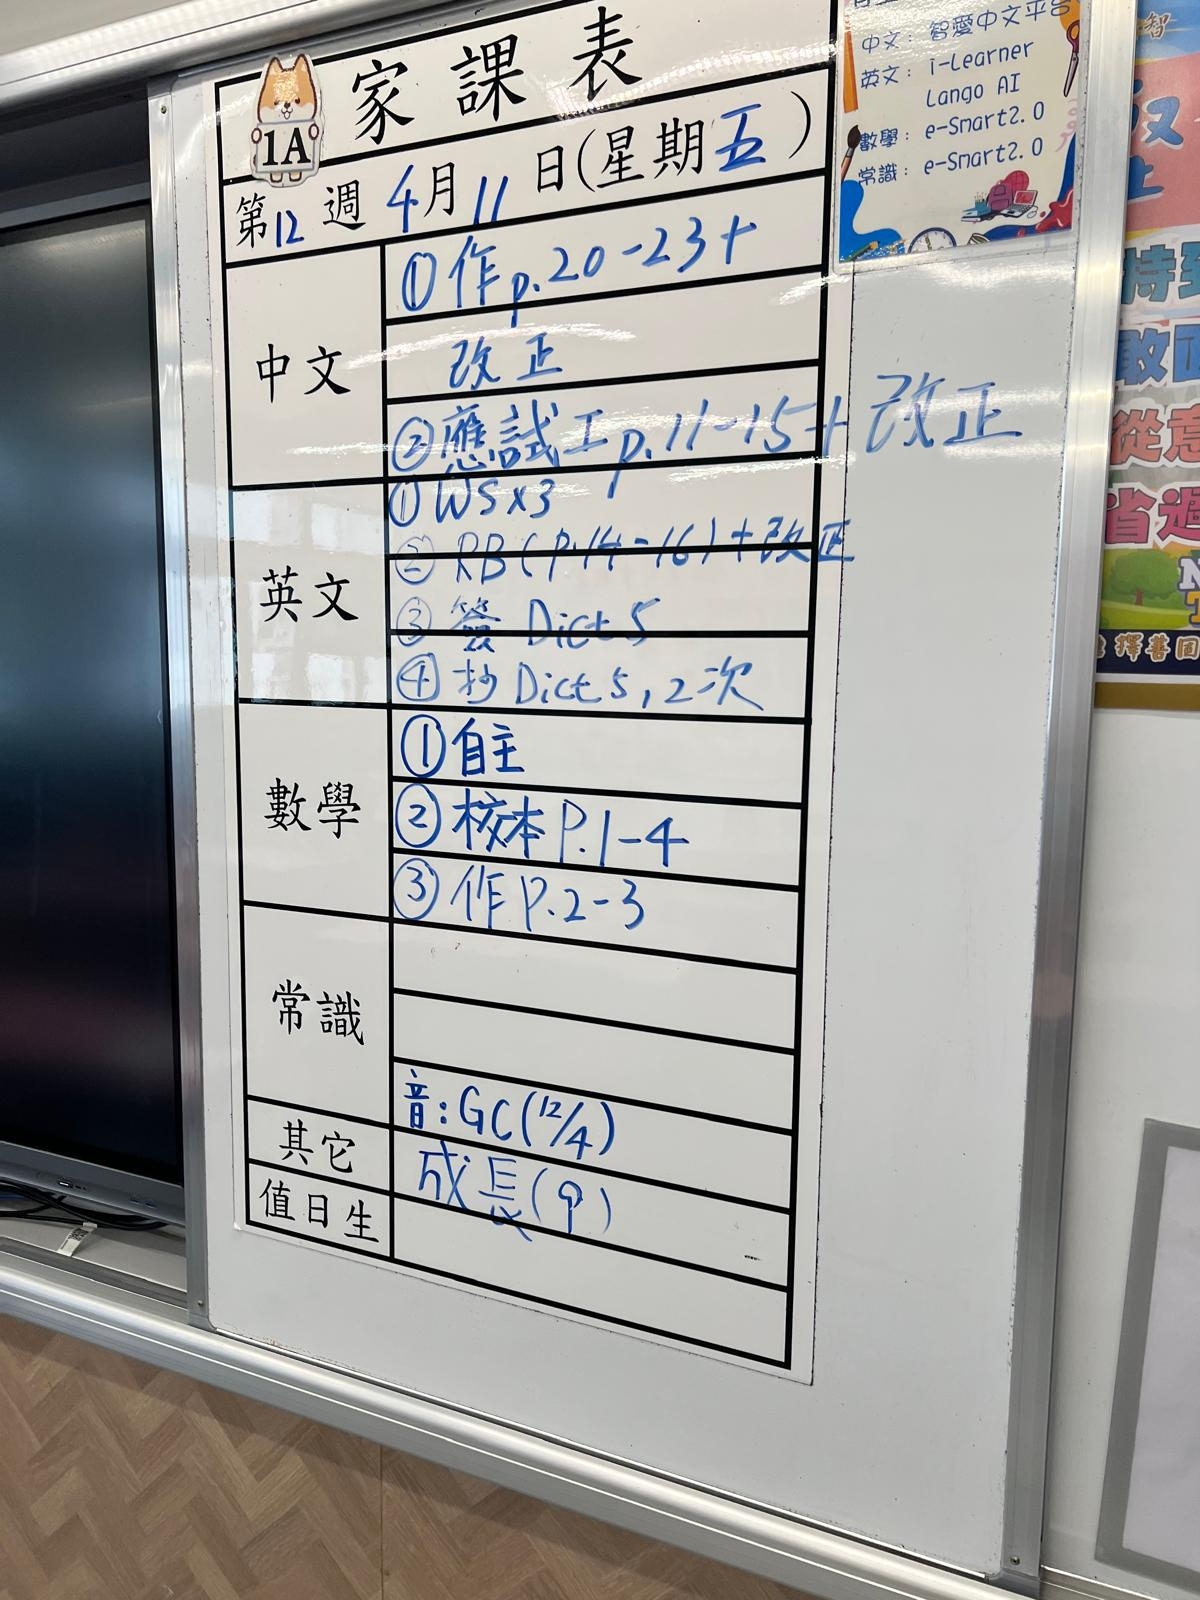 家課表
1A
第12週 4月11日(星期五)
中文
①作p.20-23+
改正
②應試工p.11-15+改正
英文
①WSx3
②RB(P.14-16)+改正
③簽 Dict 5
④抄 Dict 5, 2次
數學
①自主
②校本P.1-4
③作P.2-3
常識
音:GC(12/4)
其它
成長(9)
值日生
中文: 智愛中文平台
英文: i-Learner
Lango AI
數學: e-Smart2.0
常識: e-Smart2.0
智
持
敢
從意
省
擇善固